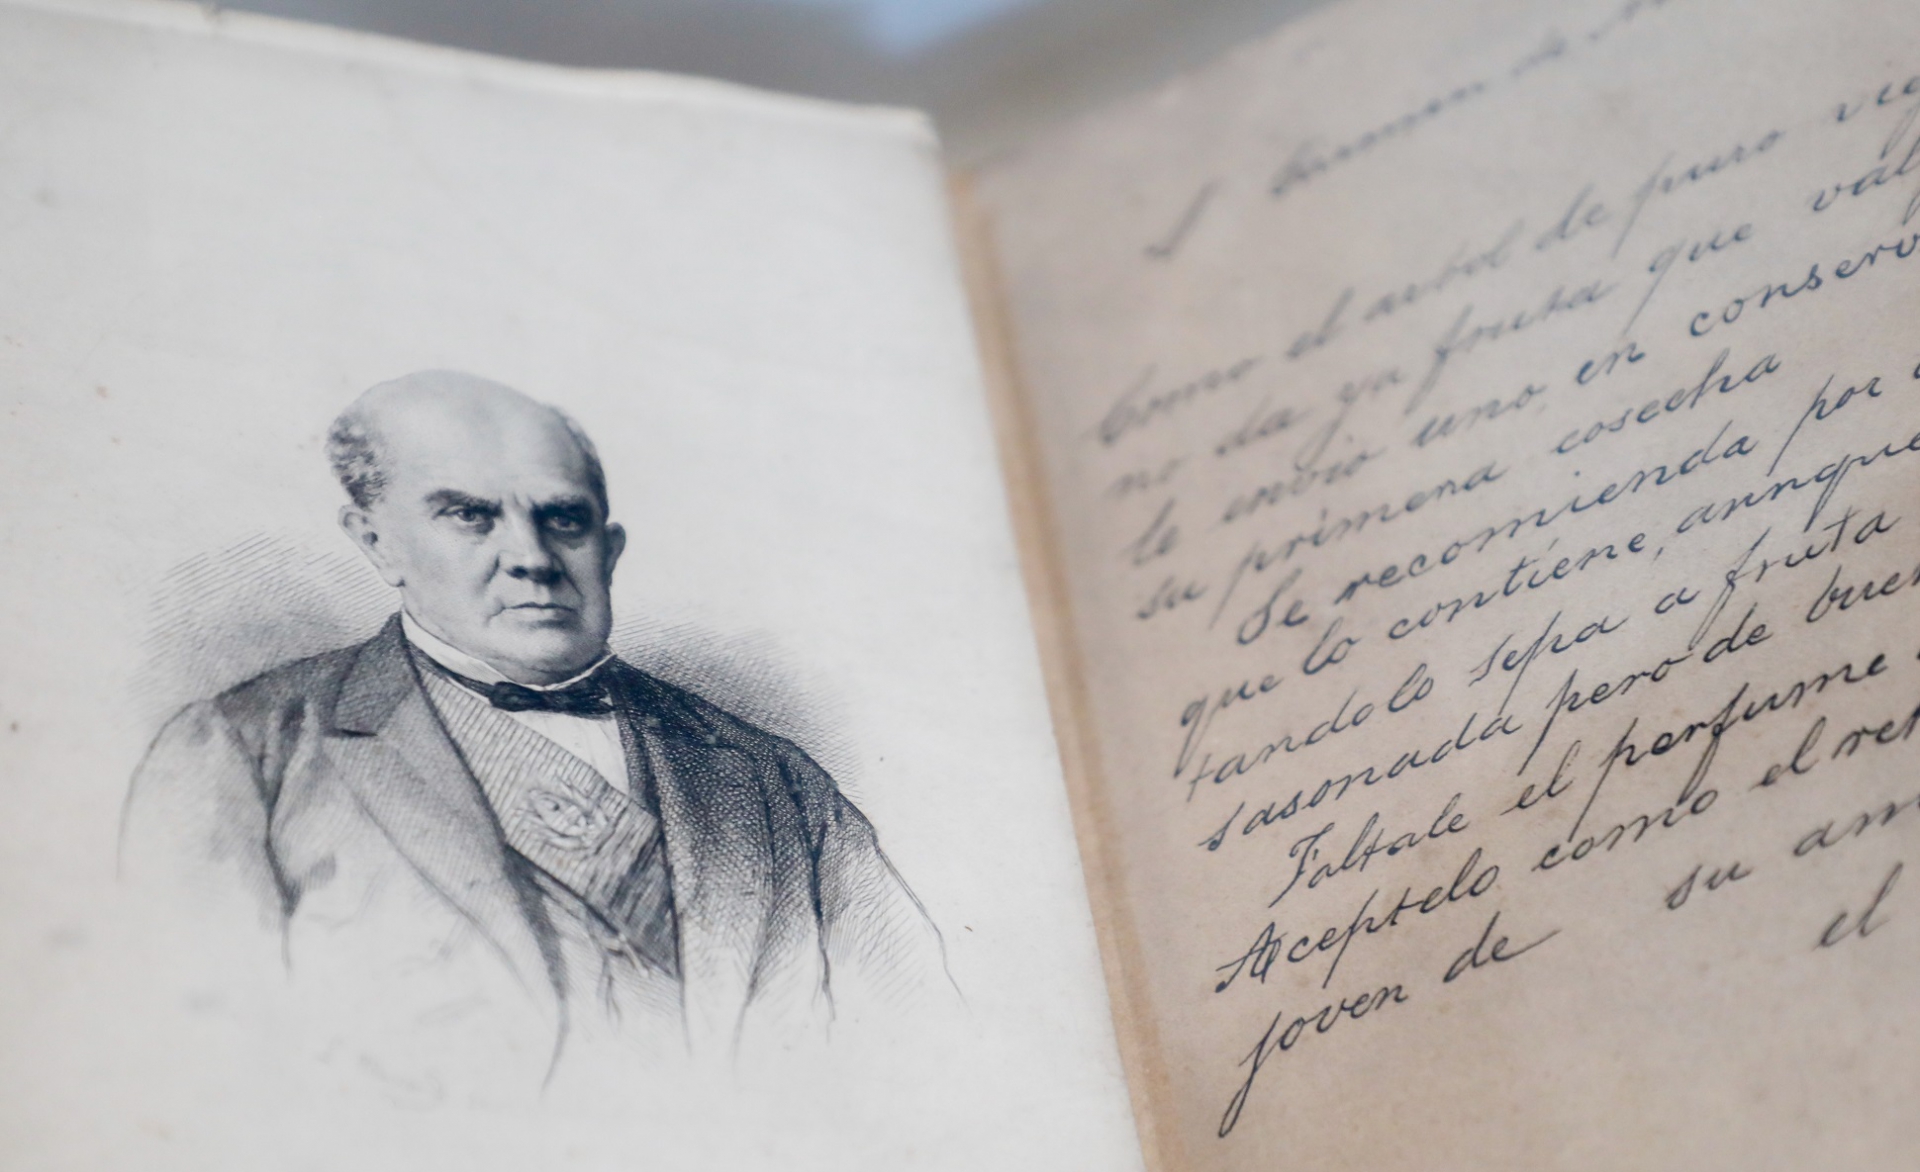 Como el arbol de puro
no da ya fruta que
le envio uno en
su primera cosecha
Se recomienda por
que lo contiene, aunque
tandolo sepa a fruta
sasonada pero de
Faltale el perfume
Aceptelo como el
joven de su
el